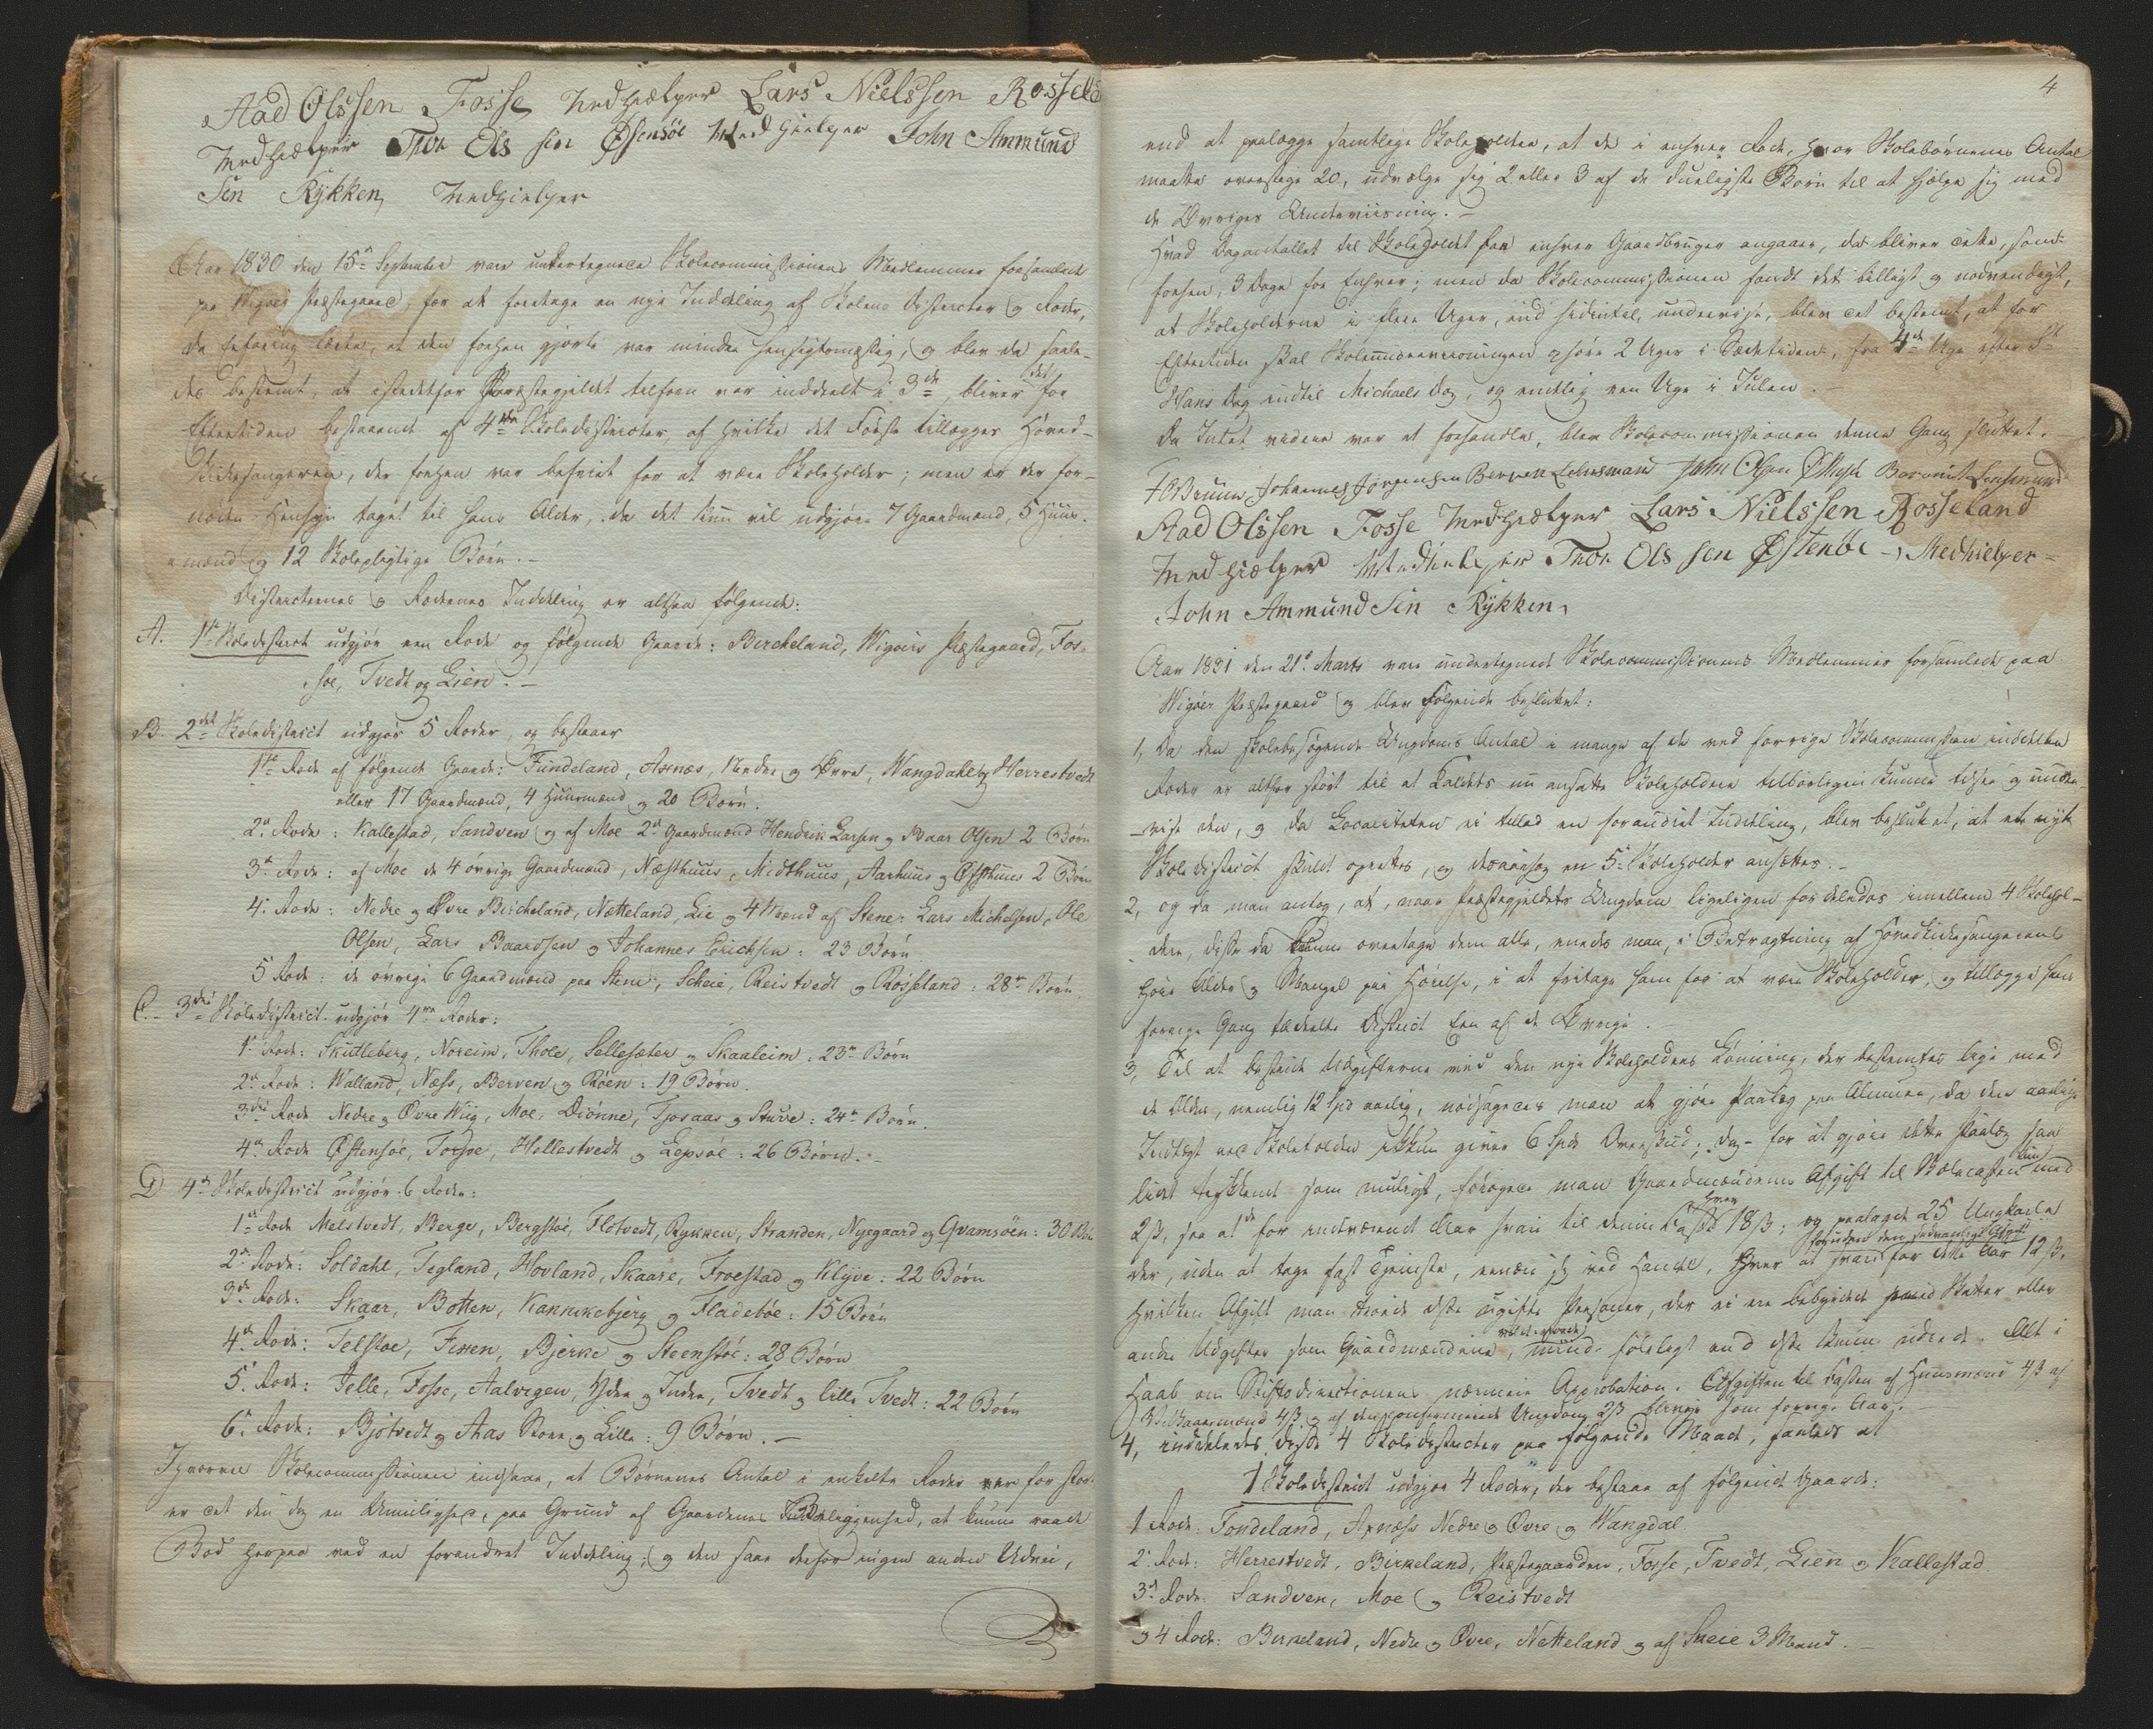 Aad Olssen Fosse Medhielper Lars Nielssen Rosseland
Medhielper Thor Ols sen Østensöe Medhielper John Ammund
sen Rykken, Medhielper
Aar 1830 den 15de September vare undertegnede Skolecommissionens Medlemmer forsamlede
paa Wigöers Præstegaard, for at foretage en nye Inddeling af Skolens Districter og Roder,
da Erfaring lærte, at den forhen gjorte var mindre hensigtsmæssig, og blev da saale-
des bestemt, at istedetfor Præstegjeldet tilforn var inddeelt i 3de, bliver det for
Eftertiden bestaaende af 4re Skoledistricter, af hvilke det Første tillægges Hoved-
kirkesangeren, der forhen var befriet for at være Skoleholder; men er der for-
nöden Hensyn taget til hans Alder, da det kun vil udgjöre 7 Gaardmænd, 5 Huus-
mænd og 12 Skolepligtige Börn. -
Districternes og Rodernes Inddeling er altsaa fölgende:
A. 1ste Skoledistrict udgjör een Rode og fölgende Gaarde: Bircheland, Wigöers Præstegaard, Fos-
soe, Tvedt og Lien. -
B. 2det Skoledistrict udgjör 5 Roder, og bestaaer
1ste Rode af fölgende Gaarde: Fundeland, Axnæs, Nedre og Øvre, Wangdahl og Herrestvedt
eller 17 Gaardmænd, 4 Huusmænd og 20 Börn.
2de Rode: Kallestad, Sandven og af Moe 2de Gaardmænd Hendrik Larsen og Baar Olsen 2 Börn
3de Rode: af Moe de 4 övrige Gaardmænd, Næsthuus, Midthuus, Aarhuus og Øfsthuus 2 Börn
4. Rode: Nedre og Øvre Bircheland, Nætteland, Lie og 4 Mænd af Stene: Lars Michelsen, Ole
Olsen, Lars Baardsen og Johannes Erichsen: 23 Börn
5 Rode: de övrige 6 Gaardmænd paa Stene, Scheie, Reistvedt og Rosseland: 28 Börn.
C. - 3die Skoledistrict udgjör 4re Roder:
1. Rode: Skutleberg, Noreim, Thole, Sellesæter og Skaaleim: 23 Börn
2de Rode: Walland, Næss, Berven og Röen: 19 Börn.
3die Rode Nedre og Övre Wiig, Moe, Diönne, Tjosaas og Sture: 24 Börn.
4de Rode Østensöe, Torpe, Hollestvedt og Lepsöe: 26 Börn. -
D 4de Skoledistrict udgjör 6 Roder:
1ste Rode Melstvedt, Berge, Bergstöe, Flotvedt, Rykken, Stranden, Nyegaard og Qvamsöen: 30 Börn
2de Rode: Soldahl, Tegland, Hovland, Skaare, Froestad og Klyve: 22 Börn
3de Rode: Skaar, Botten, Kannikebjerg og Fladeböe: 15 Börn
4de Rode: Felstoe, Fixen, Bjerke og Steenstöe: 28 Börn
5. Rode: Jelle, Fosse, Aalvigen, Ydre og Indre, Tvedt og lille Tvedt: 22 Börn
6. Rode: Bjotvedt og Aas Store og Lille: 9 Börn. -
Ihvorvel Skolecommissionen indsaae, at Börnenes Antal i enkelte Roder var for stor
er det den dog en Umulighed, paa Grund af Gaardenes Beliggenhed, at kunne raade
Bod herpaa ved en forandret Inddeling; og den saae derfor ingen anden Udvei,
4
end at paalægge samtlige Skoleholdere, at de i enhver Rode, hvor Skolebörnenes Antal
maatte overstige 20, udvælge sig 2 eller 3 af de dueligste Börn til at hjælpe sig med
de Övriges Underviisning. -
Hvad Dagantallet til Skolehold for enhver Gaardbruger angaaer, da bliver dette, som
forhen, 3 Dage for Enhver; men da Skolecommissionen fandt det billigt og nødvendigt,
at Skoleholderne i flere Uger, end hidindtil, underviiste, blev det bestemt, at for
Eftertiden skal Skoleunderviisningen ophöre 2 Uger i Sædetiden, fra 4de Uge efter St
Hans Dag indtil Michaels Dag, og endelig een Uge i Julen. -
Da Intet videre var at forhandle, blev Skolecommissionen denne Gang sluttet.
F Bruun, Johannes Jörgensen Berven Lehnsmand John Olsen Baronie Lensmand
Aad Olssen Fosse Medhielper Lars Nielssen Rosseland
Medhielper Medhielper Thor Ols sen Østenöe - Medhielper -
John Ammund sen Rykken,
Aar 1831 den 21de Marts vare undertegnede Skolecommissionens Medlemmer forsamlede paa
Wigöer Præstegaard og blev Følgende besluttet:
1, Da den skolebesögende Ungdoms Antal i mange af de ved forrige Skolecommission inddeelte
Roder er altfor stort til at Kaldets nu ansatte Skoleholdere tilbörligen kunne tilsee og under-
vise den, og da Localiteten ei tillod en forandret Inddeling, blev besluttet, at et nyt
Skoledistrict skulde oprettes, og desaarsag en 5te Skoleholder ansættes. -
2, og da man antog, at, naar Præstegjeldets Ungdom ligeligen fordeeltes imellem 4 Skolehol-
dere, disse da kunne overtage dem alle, enedes man, i Betragtning af Hovedkirkesangerens
höie Alder og Mangel paa Hörelse, i at fritage ham for at være Skoleholder, og tillægge hans
forrige Gang tildeelte District Een af de Övrige. -
3, Til at bestride Udgifterne ved den nye Skoleholders Lönning, der bestemtes lige med
de Ældre, nemlig 12 Spd aarlig, nödsagedes man at gjöre Paalæg paa Almuen, da den aarlige
Indtægt ved Skoleholdet ikkun giver 6 Spds Overskud; dog - for at gjøre dette Paalæg saa
lidet trykkende som muligt, forögede man Gaardmændenes Afgift til Skolecassen kun med
2ß, saa at de for indeværende Aar svare til denne Casse hver 18ß; og paalagde 25 Ungkarle
der, uden at tage fast Tjeneste, nærer sig ved Handel, Hver at svare foruden den sædvanlige Afgift for dette Aar 12ß.
hvilken Afgift man troede disse ugifte Personer, der ei ere bebyrdede med Skatter eller
andre Udgifter som Gaardmændene, mindre föleligt end disse kunne udrede. Alt i
Haab om Stiftsdirectionens nærmere Approbation. Afgiften til Cassen af Huusmænd 4ß af
Baarmænd 4ß og af den confirmerede Ungdom 2ß blev som forrige Aar. -
4, inddeeltes disse 4 Skoledistricter paa fölgende Maade, saaledes at
1 Skoledistrict udgjör 4 Roder, der bestaae af fölgende Gaarde:
1 Rode: Fondeland, Axnæss Nedre og Øvre og Wangdal
2. Rode: Herrestvedt, Birkeland, Præstegaarden, Fosse, Tvedt, Lien og Kallestad
3de Rode: Sandven, Moe og Reistvedt
og 4 Rode: Birkeland, Nedre og Øvre, Netteland og af Skeie 3 Mænd. -